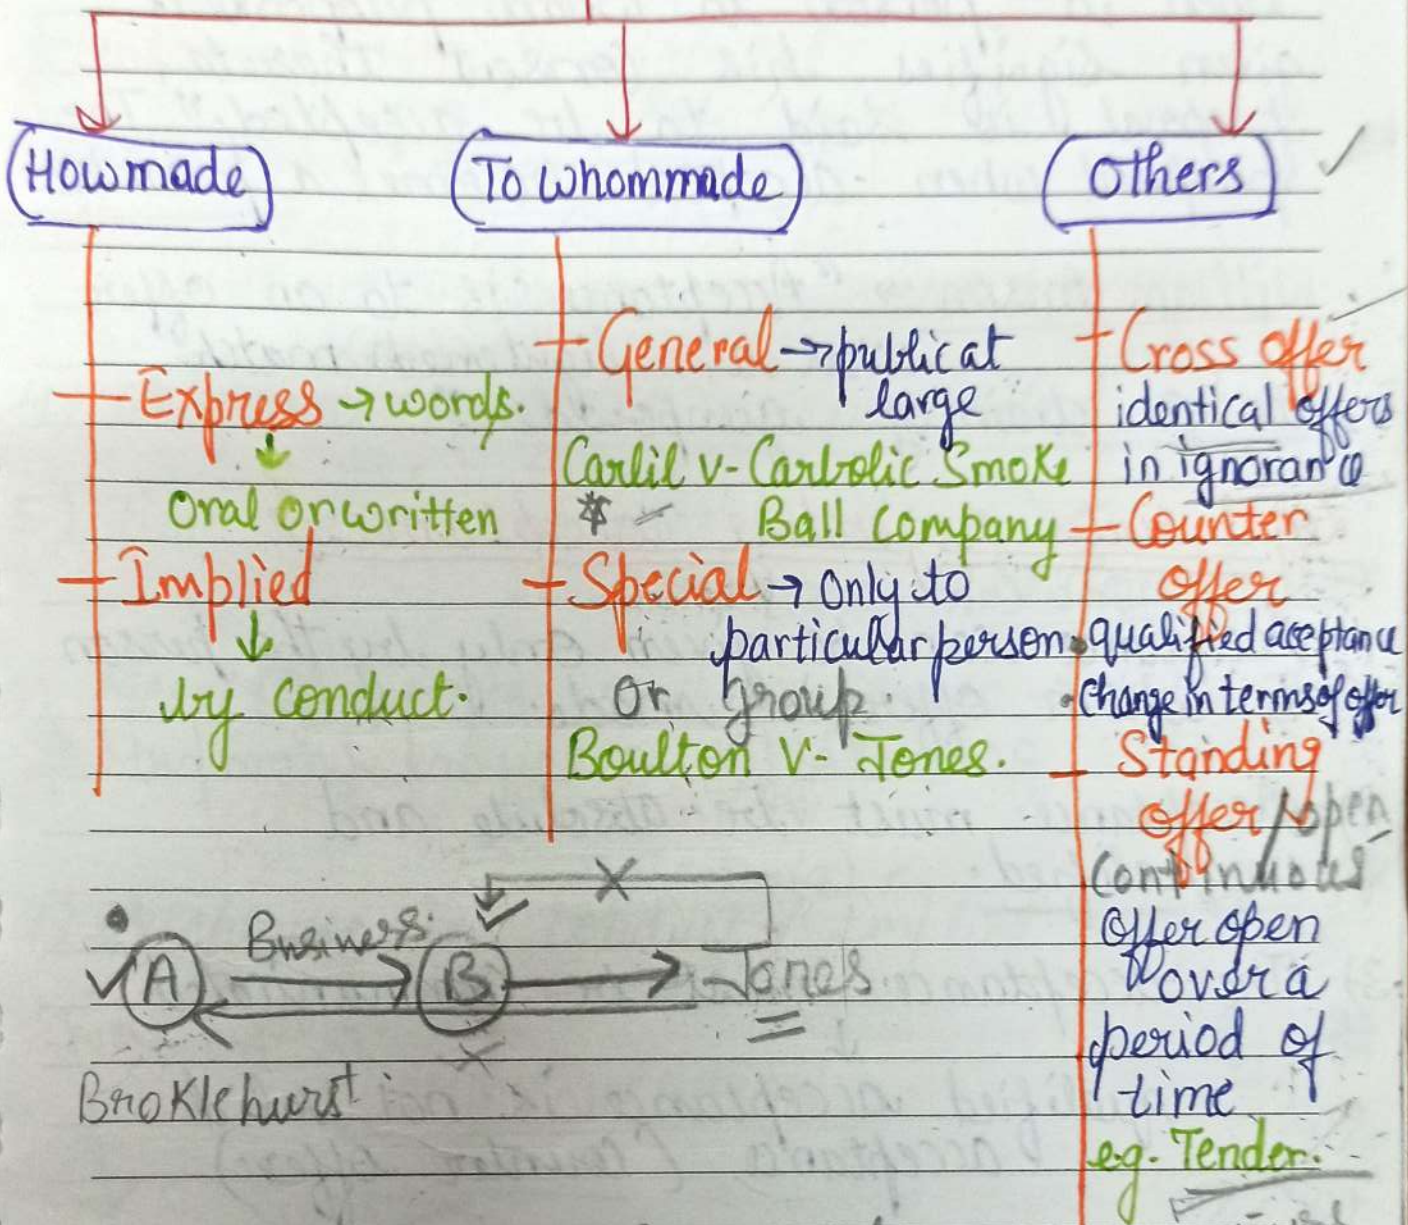 How made
To whom made
Others
Express → words.
↓
Oral or written
Implied
↓
by conduct.
General → public at
large
Carlil v- Carbolic Smoke
* Ball Company
Special → Only to
particular person
or group.
Boulton V- Jones.
Cross offer
identical offers
in ignorance
Counter
offer
• qualified aceptance
• Change in terms of offer
Standing
offer / open
Continuous
Offer open
over a
period of
time
e.g. Tender.
Business.
A
B
Jones
Broklehurst